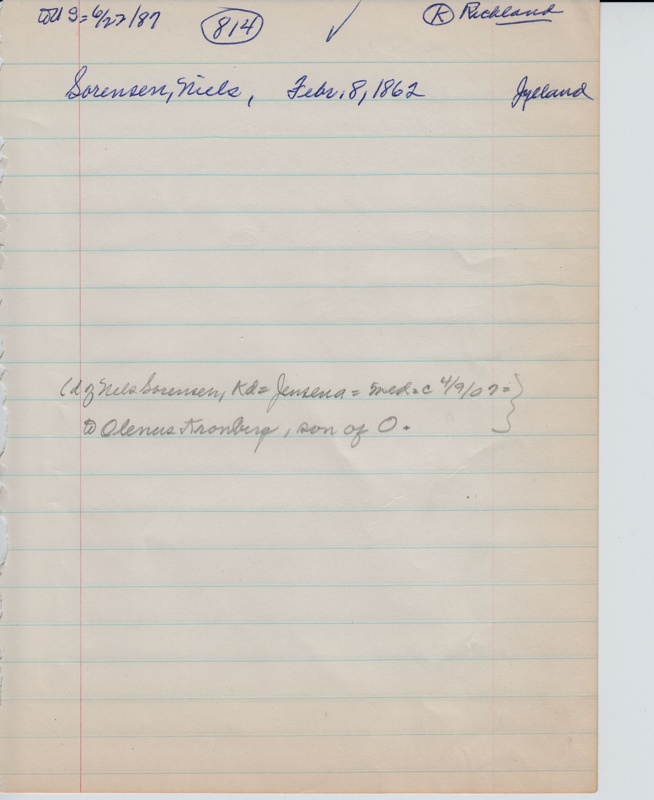 6/27/87 814 K Richland
Sorensen, Niels, Febr. 8, 1862 Jylland
(d of Nels Sorensen, Kd = Jensena = med. c 4/9/07 =
to Olenus Kronberg, son of O.